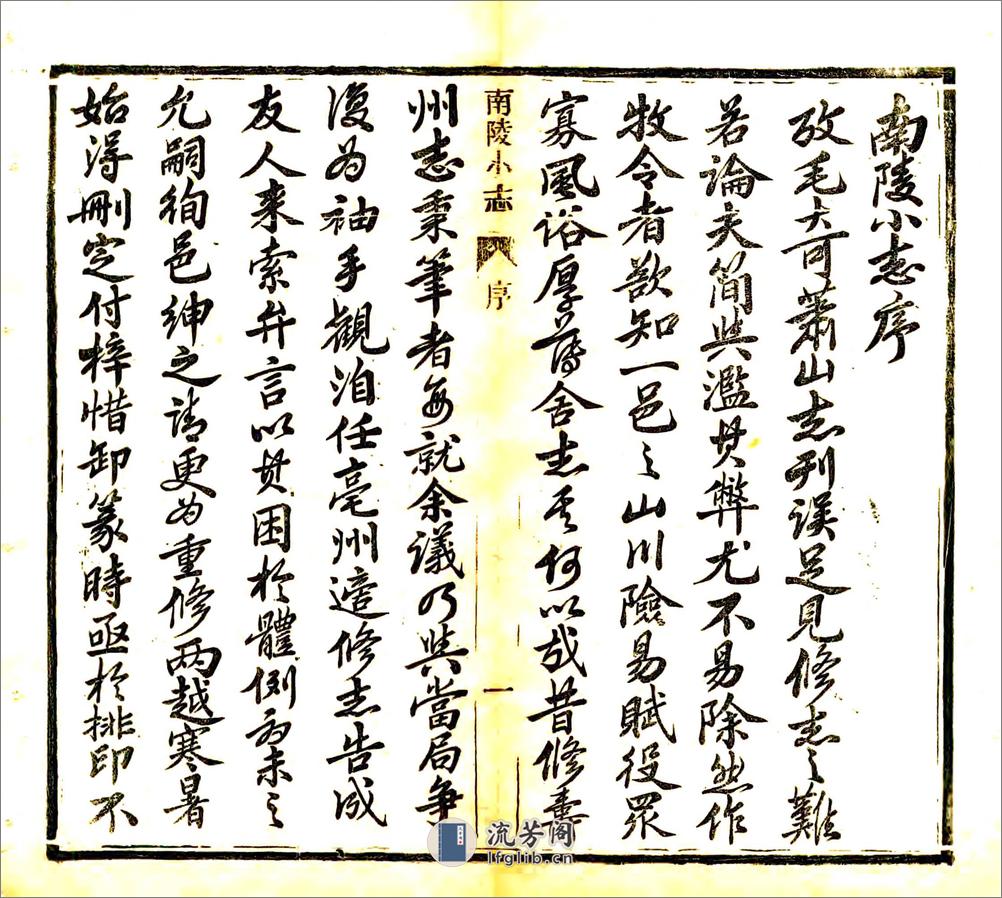 南陵小志序
攷毛大可蕭山志刊误足見修志之難
若論夫简與濫其弊尤不易除然作
牧令者欲知一邑之山川險易賦役眾
寡風俗厚薄舍志其何以哉昔修壽
南陵小志 序 一
州志秉筆者每就余議乃與當局爭
復为袖手觀洎任亳州適修志告成
友人来索弁言以其困於體例而未之
允嗣徇邑紳之請更为重修两越寒暑
始淂刪定付梓惜卸篆時亟於排印不
流芳阁
lfglib.cn